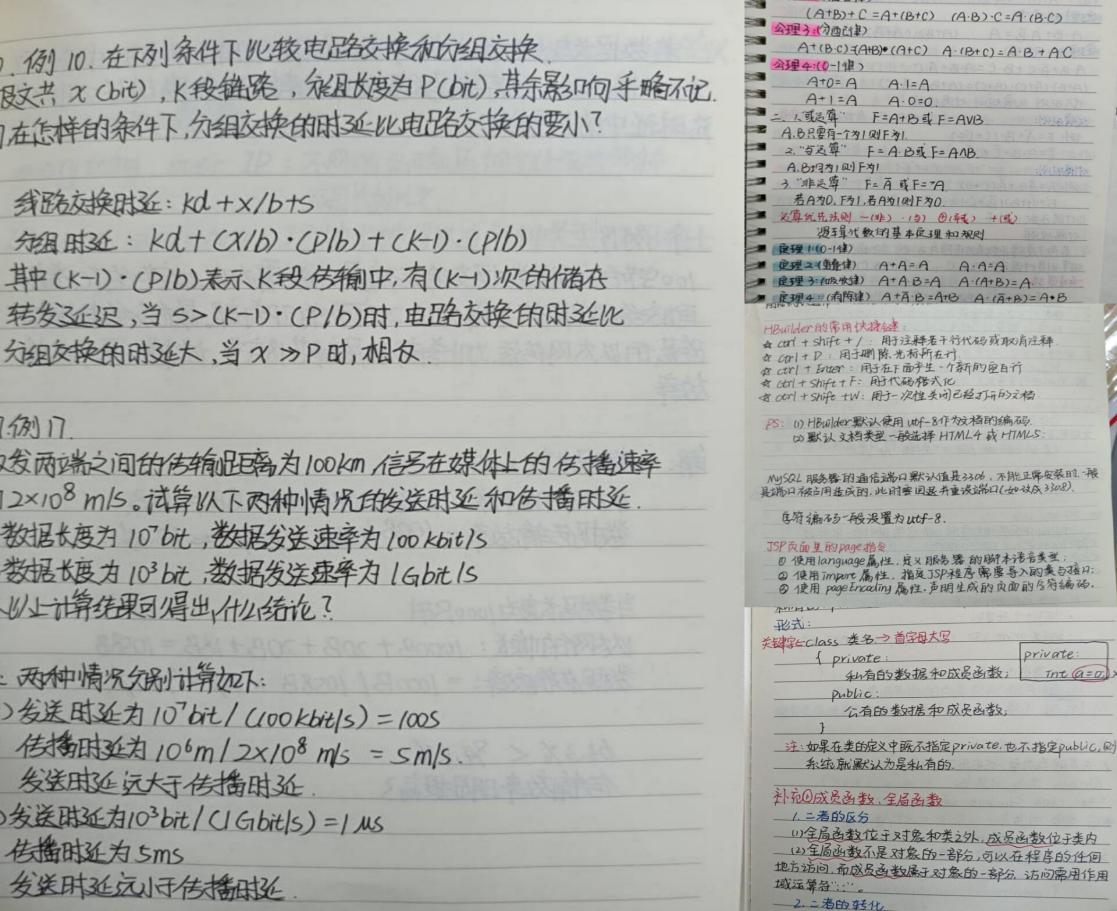 例10. 在下列条件下比较电路交换和分组交换.
报文共 x (bit), K段链路, 分组长度为P(bit),其余影响乎略不记.
在怎样的条件下,分组交换的时延比电路交换的要小?
线路交换时延: kd+x/b+s
分组时延: kd+(x/b)·(P/b)+(K-1)·(P/b)
其中(K-1)·(P/b)表示K段传输中,有(K-1)次的储存
转发延迟,当S>(K-1)·(P/b)时,电路交换的时延比
分组交换的时延大,当x≫P时,相反.
例17.
发两端之间的传输距离为100km,信号在媒体上的传播速率
2×10⁸ m/s。试算以下两种情况的发送时延和传播时延.
数据长度为10⁷bit,数据发送速率为100kbit/s
数据长度为10³bit,数据发送速率为1Gbit/s
以上计算结果可得出什么结论?
: 两种情况分别计算如下:
)发送时延为10⁷bit/(100kbit/s)=100s
传播时延为10⁶m/2×10⁸ m/s = 5m/s.
发送时延远大于传播时延.
)发送时延为10³bit/(1Gbit/s)=1μs
传播时延为5ms
发送时延远小于传播时延.
(A+B)+C=A+(B+C) (A·B)·C=A·(B·C)
公理3:(分配律)
A+(B·C)=(A+B)•(A+C) A·(B+C)=A·B+A·C
公理4:(0-1律)
A+0=A A·1=A
A+1=A A·0=0.
二. 1."或运算" F=A+B或F=A∨B
A.B只要有一个为1则F为1.
2."与运算" F=A·B或F=A∧B.
A.B均为1则F为1
3."非运算" F=Ā 或F=¬A
若A为0,F为1,若A为1则F为0.
运算优先法则 —(非) ·(与) ⊕(异或) +(或)
逻辑代数的基本定理和规则
定理1:(0-1律)
定理2:(重叠律) A+A=A A·A=A.
定理3:(吸收律) A+A·B=A A·(A+B)=A.
定理4: (消除律) A+Ā·B=A+B A·(Ā+B)=A•B
HBuilder的常用快捷键:
☆ ctrl + shift + / : 用于注释若干行代码或取消注释.
☆ ctrl + D : 用于删除光标所在行.
☆ ctrl + Enter : 用于在下面产生一个新的空白行
☆ ctrl + Shift + F: 用于代码格式化
☆ ctrl + shift +W: 用于一次性关闭已经打开的文档
PS: (1) HBuilder默认使用utf-8作为文档的编码.
(2) 默认文档类型一般选择HTML4或HTML5.
MySQL 服务器的通信端口默认值是3306, 不能正常安装时,一般
是端口被占用造成的,此时要回退并重设端口(如设成3308).
字符编码一般设置为utf-8.
JSP页面里的page指令
① 使用language属性,定义服务器的脚本语言类型;
② 使用import属性,指定JSP程序需要导入的类与接口;
③ 使用pageEncoding属性,声明生成的页面的字符编码.
形式:
关键字←class 类名→首字母大写
{ private:
私有的数据和成员函数;
public:
公有的数据和成员函数;
}
private:
int a=0;
注: 如果在类的定义中既不指定private.也不指定public,则
系统就默认为是私有的.
补充①成员函数、全局函数
1.二者的区分
(1)全局函数位于对象和类之外,成员函数位于类内
(2)全局函数不是对象的一部分,可以在程序的任何
地方访问,而成员函数属于对象的一部分.访问需用作用
域运算符"::"。
2.二者的转化